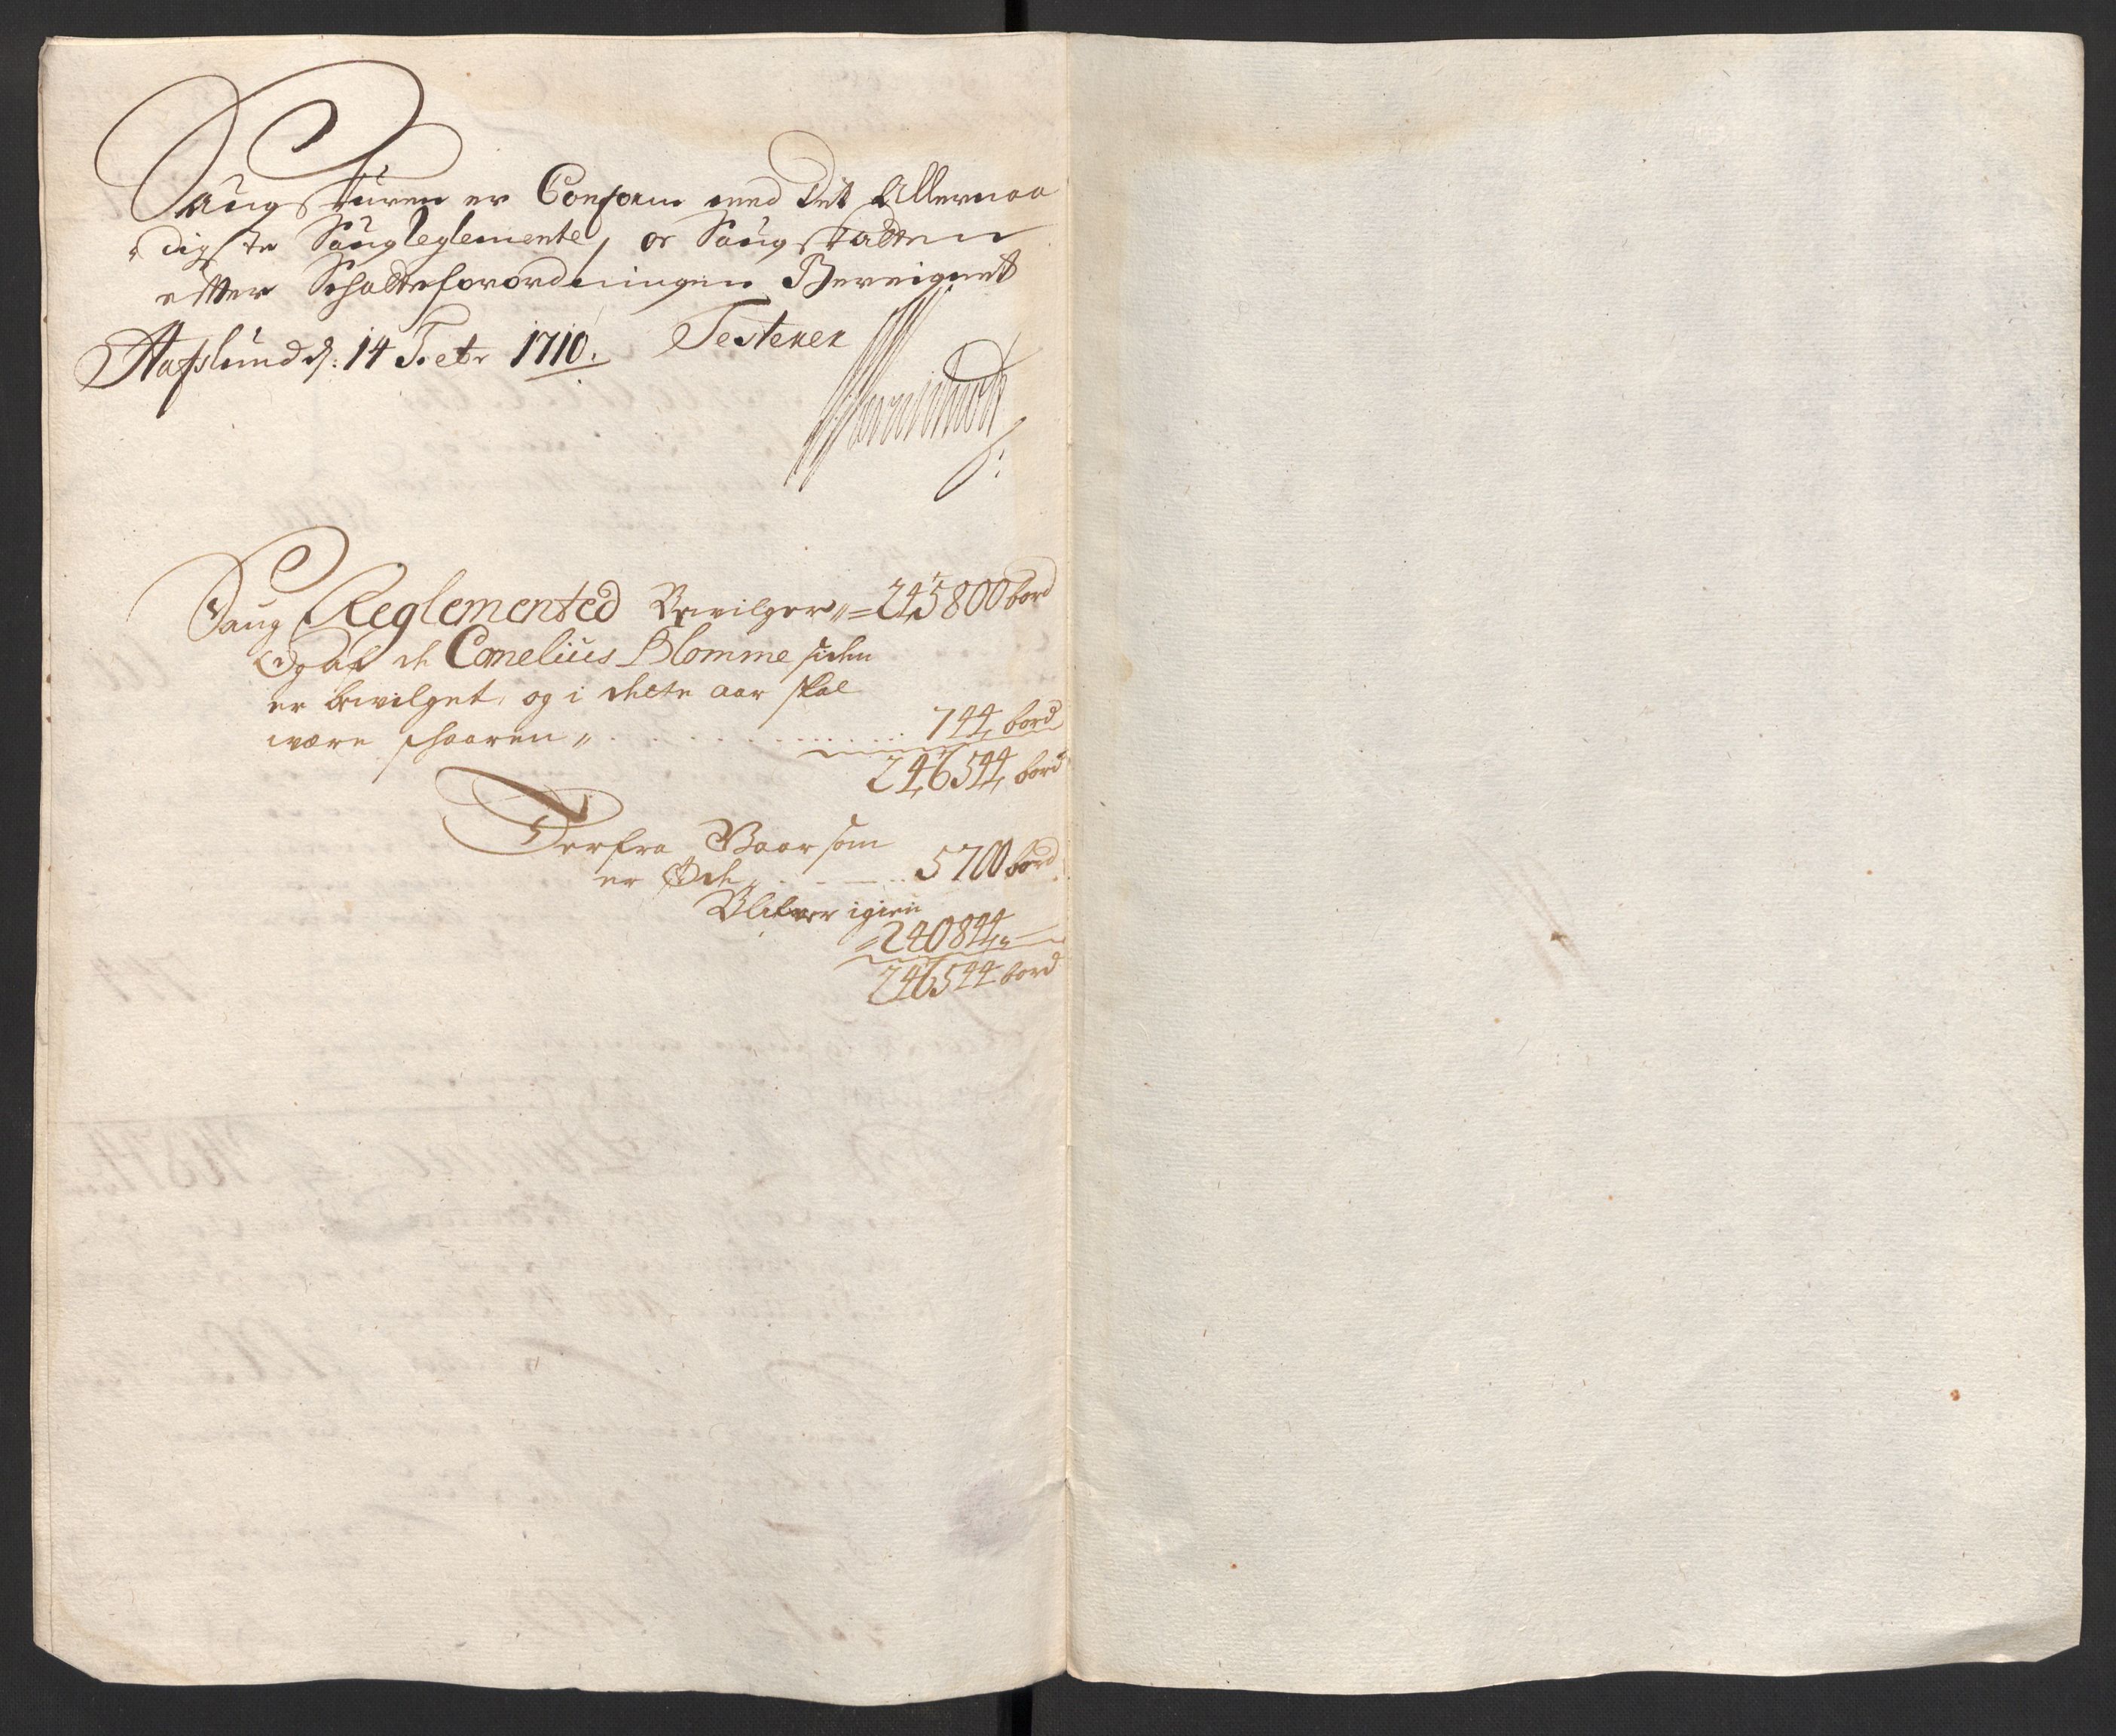 Saugskuren er Conform med det Allernaa
digste Saugreglemente, og Saugskatten
efter Schatteforordningen Bereignet
Hafslund d: 14 1710. Testerer
Saug Reglemented Bevilger 245800 bord
Og af de Cornelius Blomme siden
er bevilget, og i dette aar skal
være skaaren 744 bord
246544 bord
Derfra Saar som
er Øde 5700 bord
Blifver igien
240844
246544 bord